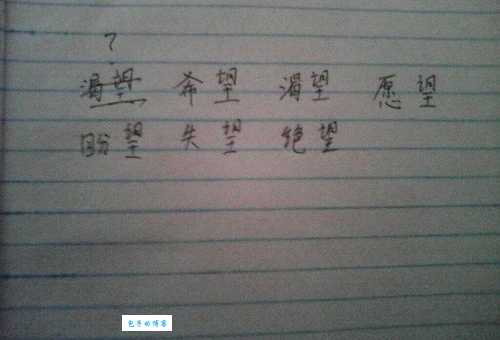 ?
渴望 希望 渴望 愿望
盼望 失望 绝望
包子的博客